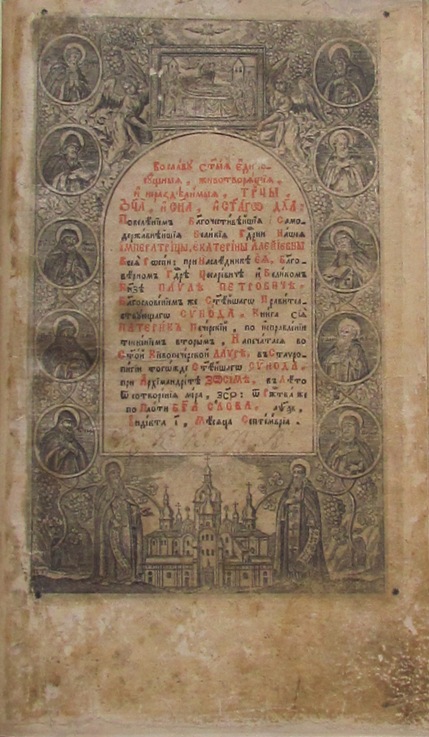 Во славу ст҃ыѧ єди́но-
сущныѧ, животворѧщиѧ,
и нераздѣлимыѧ, ТРЦЫ,
Ѻ҃ЦА, и СН҃А, и СТ҃АГѠ ДХ҃А:
Повелѣнїемъ Благочестивѣйшїѧ Само-
державнѣйшїѧ Великїѧ Гдⷭ҇рни Нашеѧ
ИМПЕРАТРИЦЫ, ЕКАТЕРИНЫ АЛЕѮІЕВНЫ
Всеѧ Рѡссїи: при Наслѣдникѣ ЕѦ, Благо-
вѣрномъ Гдⷭ҇рѣ Цесаревичѣ и Великомъ
Кнѧзѣ ПАУЛѢ ПЕТРОВИЧѢ,
Благословенїемъ же Ст҃ѣйшагѡ Правитель-
ствующагѡ СУНОДА, Книга сїѧ
ПАТЕРИКЪ Печерскїй, по исправленїи
тисненїемъ вторымъ, Напечатасѧ во
Ст҃ой Кїевопечерской ЛАУРѢ, въ Стауро-
пигїи тогѡжде Ст҃ѣйшагѡ СУНОДА,
при Архїмандрїтѣ ЗѠСІМѢ, въ Лѣто
Ѿ сотворенїѧ мїра,
по Плоти БГ҃А СЛОВА,
Індїкта І҃, Мѣсѧца Септемврїа.